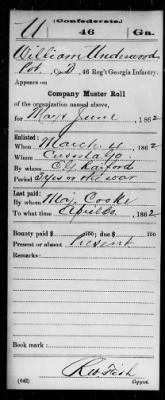 (Confederate.)
U 46 Ga.
William Underwood
Pvt., Co. D, 46 Reg't Georgia Infantry.
Appears on
Company Muster Roll
of the organization named above,
for May & June, 1862
Enlisted:
When March 4, 1862
Where Cusseta Ga.
By whom E. G. Raiford
Period 3 yrs or the war
Last paid:
By whom Maj. Cooke
To what time April 30, 1862
Bounty paid $ 100; due $ 100
Present or absent Present
Remarks:
Book mark:
(642) Copyist.